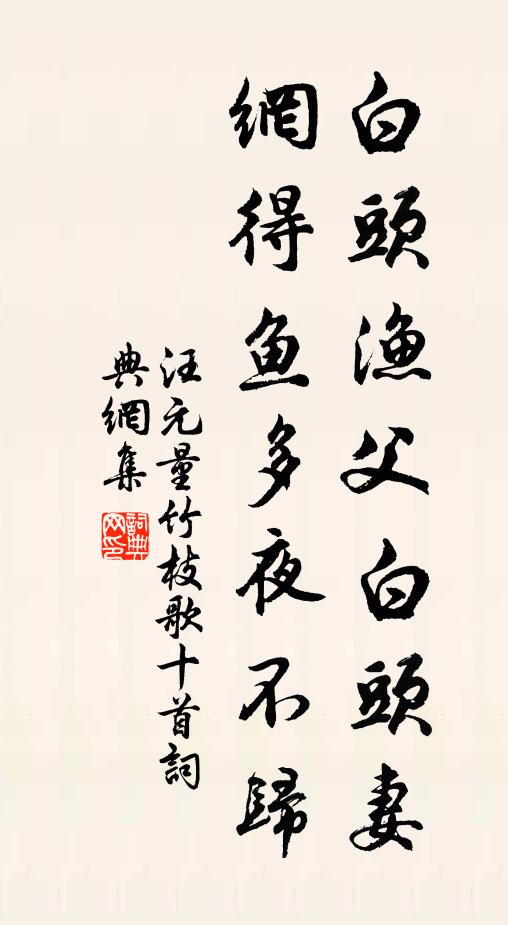 白頭漁父白頭妻
網得魚多夜不歸
汪元量竹枝歌十首詞
典網集
詞典
网印